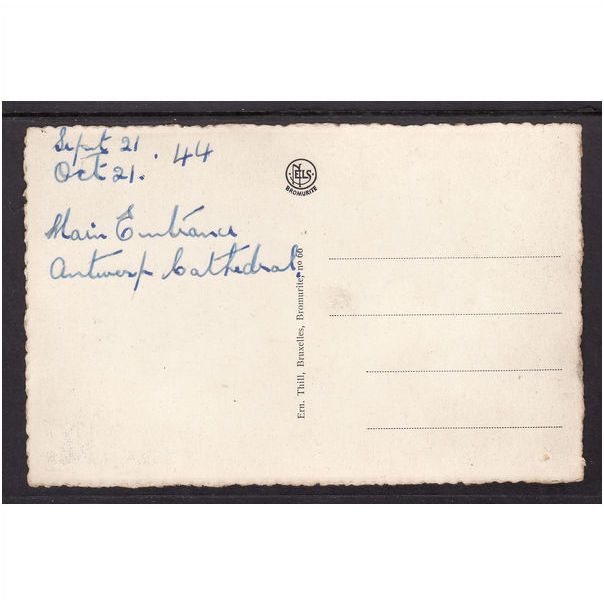 Sept 21
Oct 21. '44
Main Entrance
Antwerp Cathedral.
NELS
BROMURITE
Ern. Thill, Bruxelles, Bromurite, nº 66